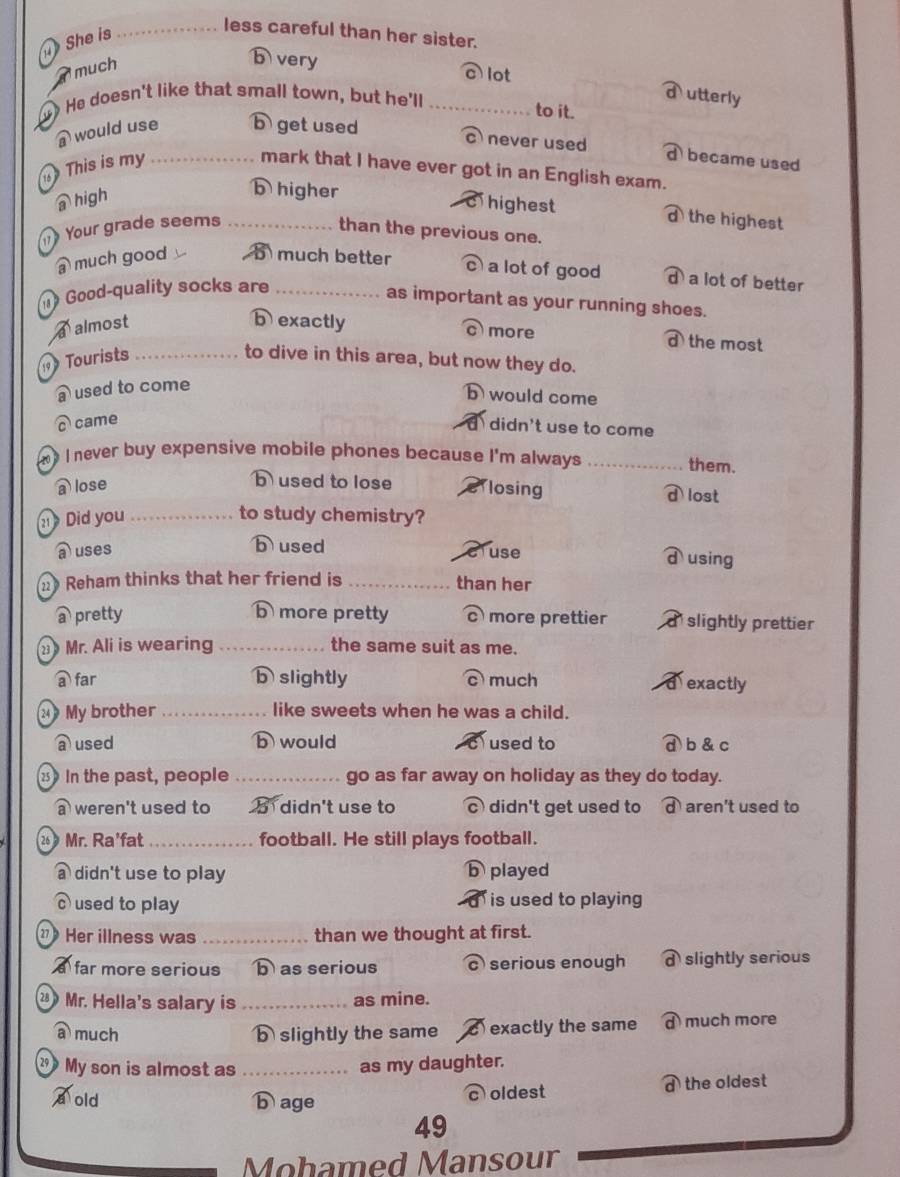 14 She is ................ less careful than her sister.
a much b very c lot d utterly
He doesn't like that small town, but he'll ................ to it.
a would use b get used c never used d became used
16 This is my ................ mark that I have ever got in an English exam.
a high b higher c highest d the highest
17 Your grade seems ................ than the previous one.
a much good b much better c a lot of good d a lot of better
18 Good-quality socks are ................ as important as your running shoes.
a almost b exactly c more d the most
19 Tourists ................ to dive in this area, but now they do.
a used to come b would come
c came d didn't use to come
20 I never buy expensive mobile phones because I'm always ................ them.
a lose b used to lose c losing d lost
21 Did you ................ to study chemistry?
a uses b used c use d using
22 Reham thinks that her friend is ................ than her
a pretty b more pretty c more prettier d slightly prettier
23 Mr. Ali is wearing ................ the same suit as me.
a far b slightly c much d exactly
24 My brother ................ like sweets when he was a child.
a used b would c used to d b & c
25 In the past, people ................ go as far away on holiday as they do today.
a weren't used to b didn't use to c didn't get used to d aren't used to
26 Mr. Ra'fat ................ football. He still plays football.
a didn't use to play b played
c used to play d is used to playing
27 Her illness was ................ than we thought at first.
a far more serious b as serious c serious enough d slightly serious
28 Mr. Hella's salary is ................ as mine.
a much b slightly the same c exactly the same d much more
29 My son is almost as ................ as my daughter.
a old b age c oldest d the oldest
49
Mohamed Mansour